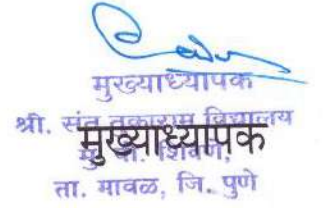 मुख्याध्यापक
श्री. संत तुकाराम विद्यालय
मुख्याध्यापक
मु. पो. शिवणे,
ता. मावळ, जि. पुणे